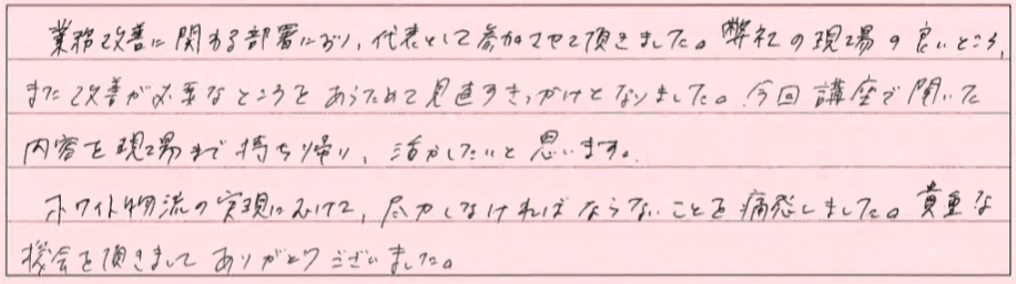 業務改善に関わる部署におり、代表として参加させて頂きました。弊社の現場の良いところ、
また改善が必要なところをあらためて見直すきっかけとなりました。今回講座で聞いた
内容を現場まで持ち帰り、活かしたいと思います。
ホワイト物流の実現にむけて、尽力しなければならないことを痛感しました。貴重な
機会を頂きましてありがとうございました。